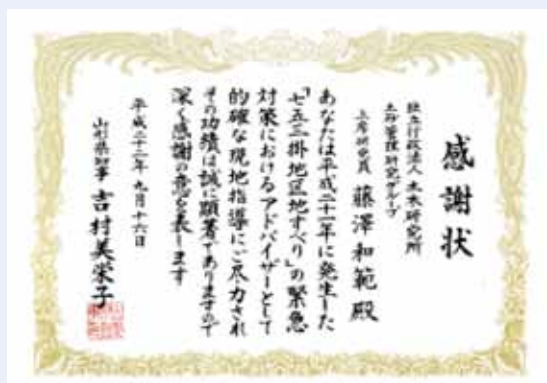 感謝状
独立行政法人 土木研究所
土砂管理研究グループ
上席研究員 藤澤和範殿
あなたは平成二十一年に発生した
「七五三掛地区地すべり」の緊急
対策におけるアドバイザーとして
的確な現地指導にご尽力され
その功績は誠に顕著でありますので
深く感謝の意を表します
平成二十二年九月十六日
山形県知事 吉村美栄子